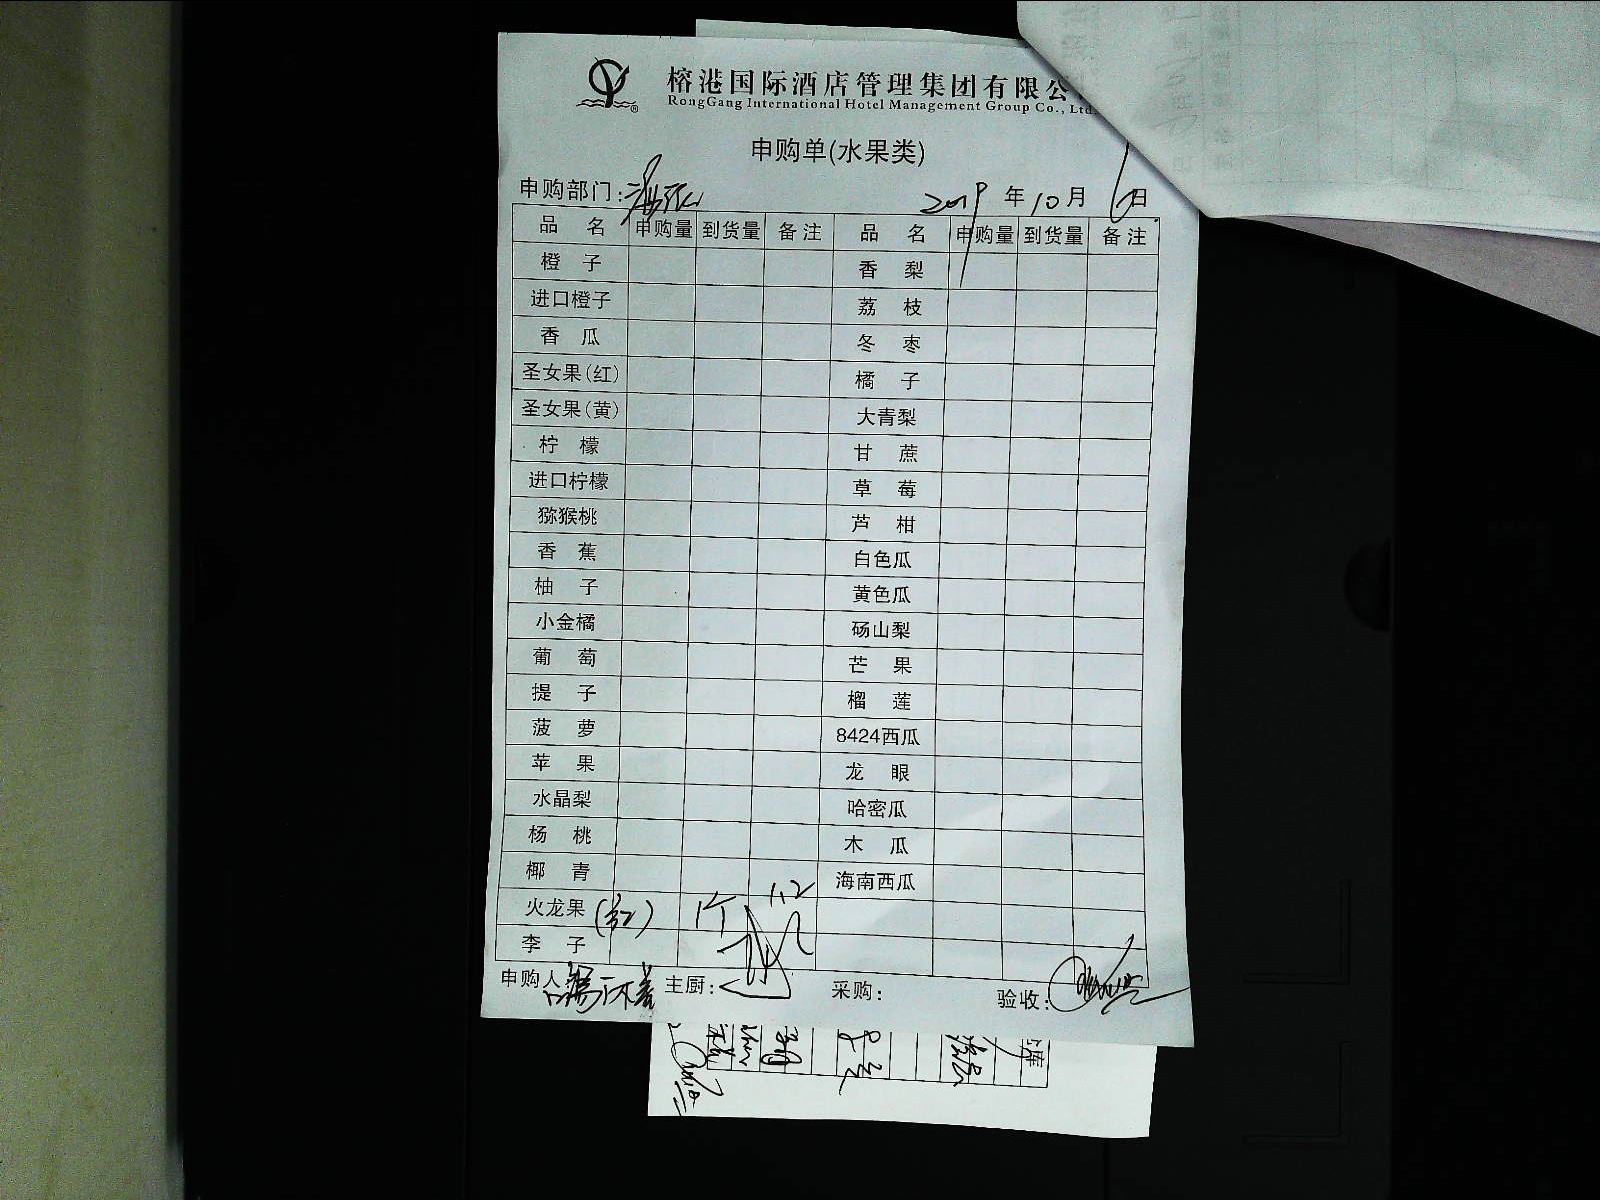 榕港国际酒店管理集团有限公
RongGang International Hotel Management Group Co., Ltd.
申购单(水果类)
申购部门: 2019 年 10 月 6 日
品 名 申购量 到货量 备注 品 名 申购量 到货量 备注
橙 子 香 梨
进口橙子 荔 枝
香 瓜 冬 枣
圣女果(红) 橘 子
圣女果(黄) 大青梨
柠 檬 甘 蔗
进口柠檬 草 莓
猕猴桃 芦 柑
香 蕉 白色瓜
柚 子 黄色瓜
小金橘 砀山梨
葡 萄 芒 果
提 子 榴 莲
菠 萝 8424西瓜
苹 果 龙 眼
水晶梨 哈密瓜
杨 桃 木 瓜
椰 青 海南西瓜
火龙果 (红) 1个 1.2
李 子
申购人 主厨: 采购: 验收: